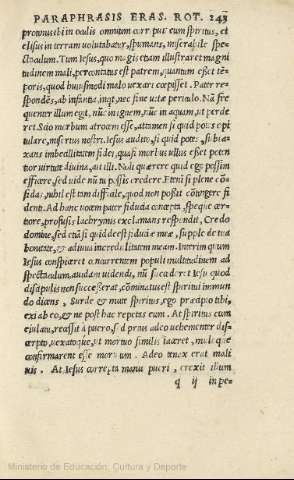 PARAPHRASIS ERAS. ROT. 243
pronus sibi in oculis omnium corripuit eum spiritus, et
elisus in terram volutabatur, spumans, miserabile spe-
ctaculum. Tum Iesus, quo magis etiam illustraret magni
tudinem mali, percontatus est patrem, quantum esset tē-
poris, quod huiusmodi malo uexari coepisset. Pater res-
pondēs, ab infantia, inqt, nec sine uitæ periculo. Nã fre
quenter illum egit, nũc in ignem, nũc in aquam, ut perde
ret. Scio morbum atrocem esse, attamen si quid potes opi
tulare, misertus nostri. Iesus audito, si quid potes, subi ta-
xans imbecillitatem fidei, quasi morbus ullus esset poten
tior uirtute diuina, ait illi. Noli quærere quid ego possim
efficere, sed uide nũ tu possis credere. Etenim si plene cō-
fidas, nihil est tam difficile, quod non possit cōtingere fi
denti. Ad hanc uocem pater fiducia concepta, speque cer-
tiore, profusis lachrymis exclamans respondit, Credo
domine, sed etiã si quid deest fiduciæ meæ, supple de tua
bonitate, & adiuua incredulitatem meam. Interim quum
Iesus conspiceret concurrentem populi multitudinem ad
spectaculum, auidam uidendi, nũ succederet Iesu quod
discipulis non successerat, cōminatus est spiritui immun
do dicens, Surde & mute spiritus, ego præcipio tibi,
exi ab eo, & ne post hac repetas eum. At spiritus cum
eiulatu, recessit a puero, sed prius adeo uehementer dis-
cerpto, uexatoque, ut mortuo similis iaceret, multi que
confirmarent esse mortuum. Adeo tenax erat mali
tuis. At Iesus correpta manu pueri, erexit illum
q ij in pe-
Ministerio de Educación, Cultura y Deporte